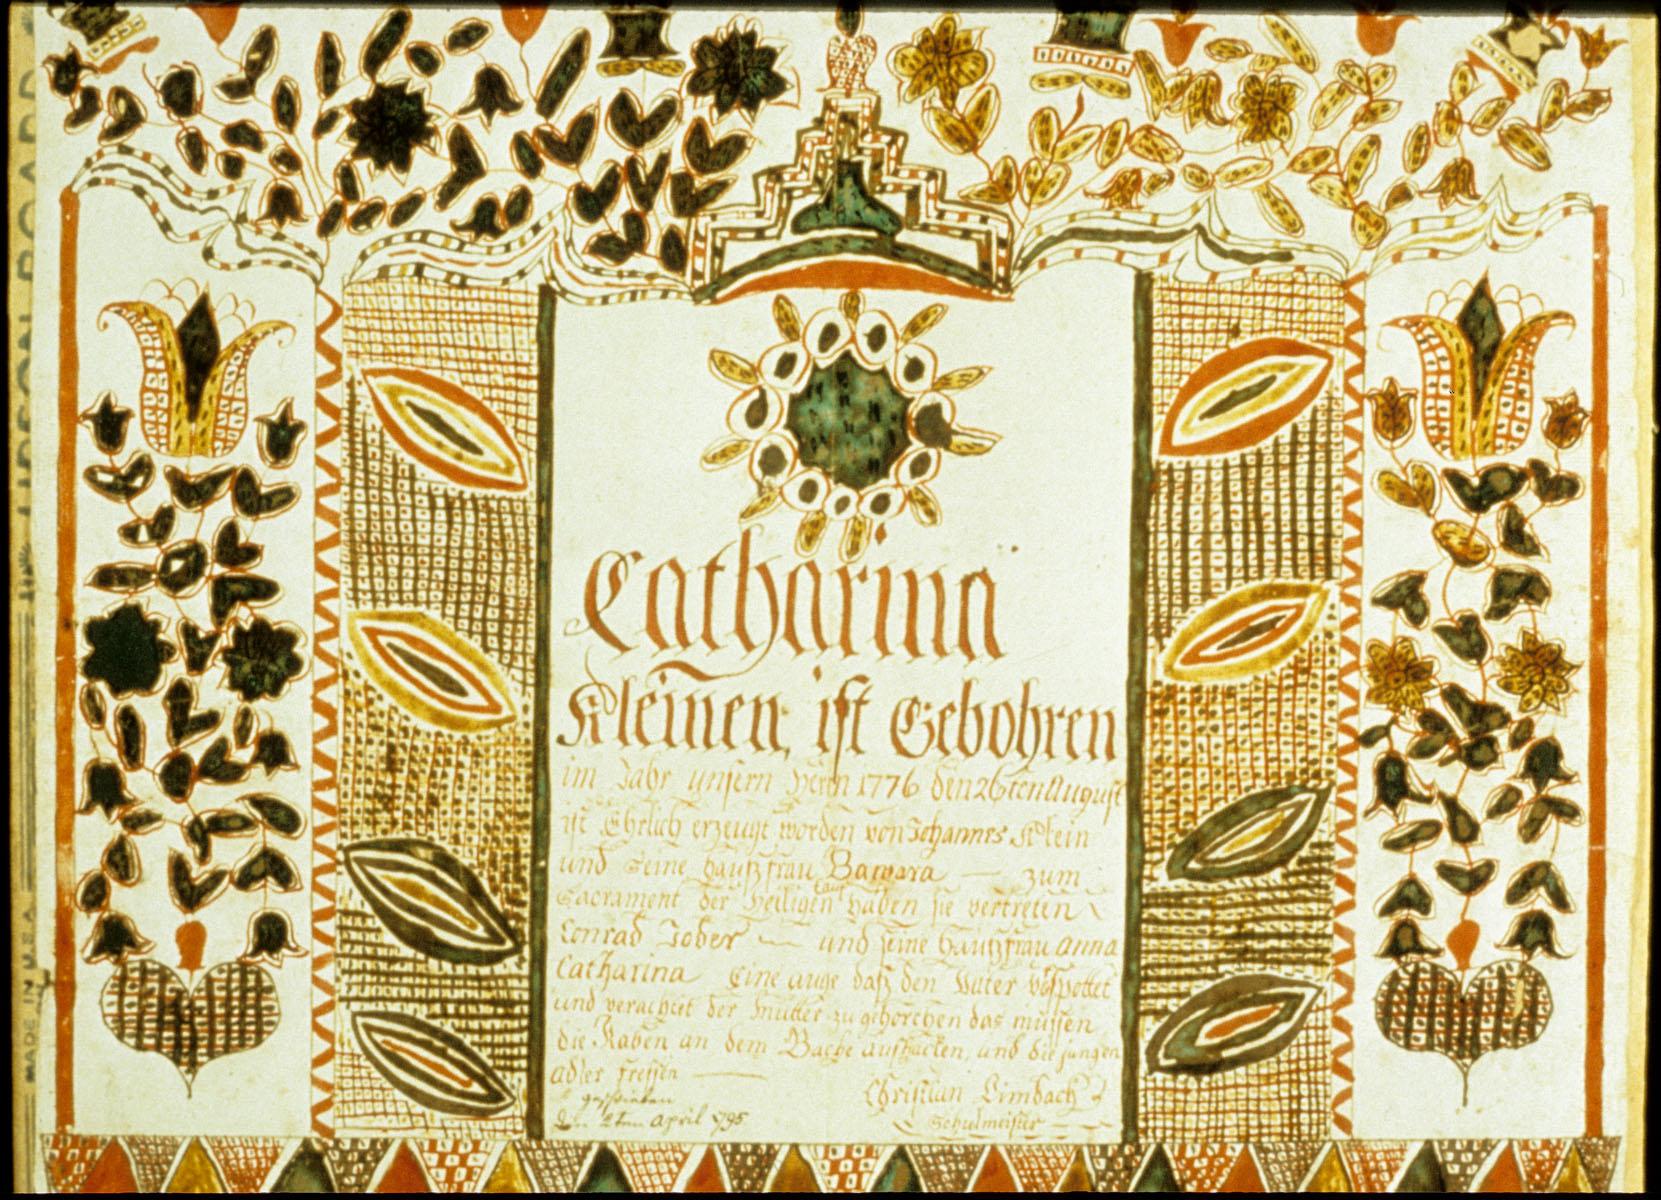 Catharina
Kleinen, ist Gebohren
im Jahr unsern Herrn 1776 den 26ten August
ist Ehrlich erzeugt worden von Johannes Klein
und Seine haußfrau Barbara — zum
Sacrament der Heiligen tauf haben sie vertreten
Conrad — und seine haußfrau Anna
Catharina Eine auge daß den Vater verspottet
und verachtet der Mutter zu gehorchen das müssen
die Raben an dem Bache aushacken, und die jungen
adler fressen —
geschrieben
den 2ten April 1795
Christian Limbach
Schulmeister
MADE IN U.S.A.